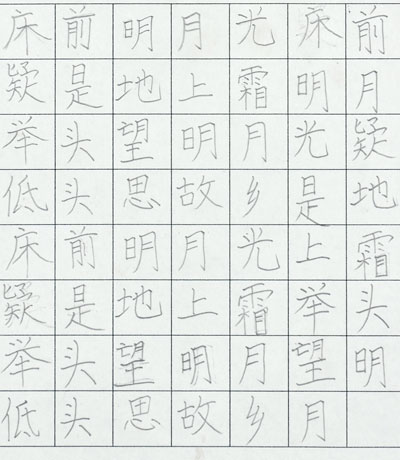 床前明月光床前
疑是地上霜明月
举头望明月光疑
低头思故乡是地
床前明月光上霜
疑是地上霜举头
举头望明月望明
低头思故乡月